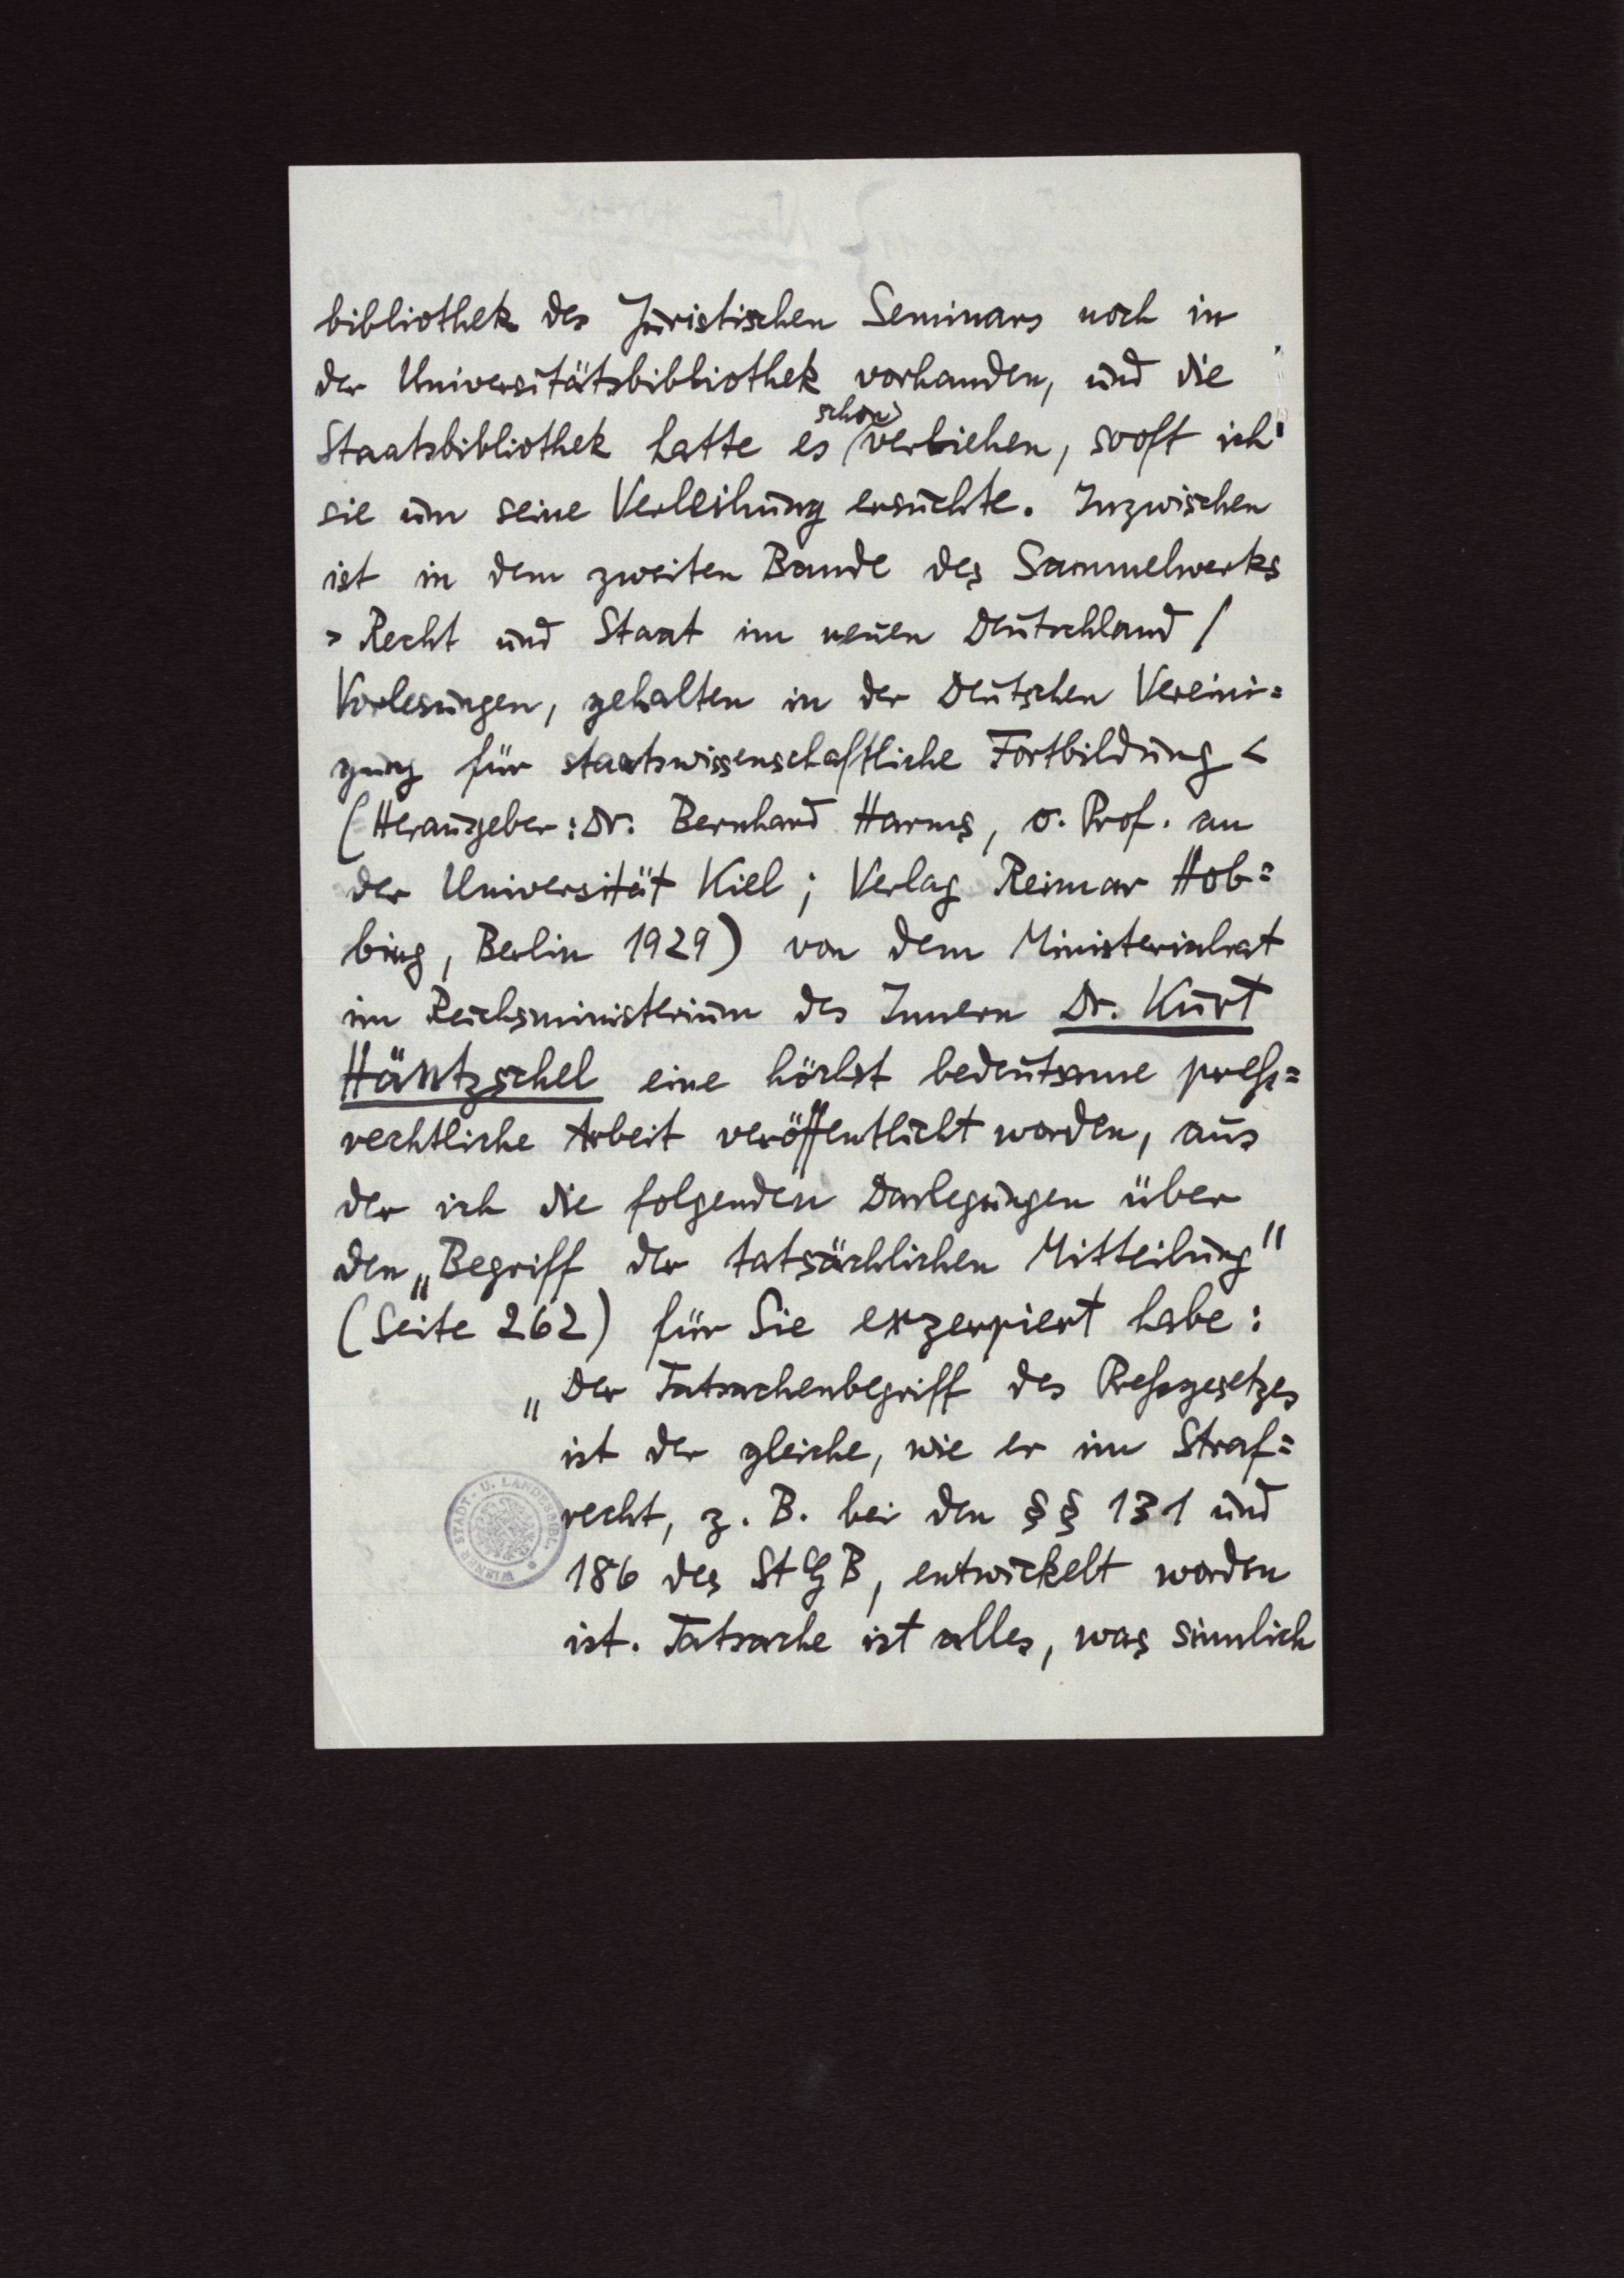 bibliothek des Juristischen Seminars noch in
der Universitätsbibliothek vorhanden, und die
schon
Staatsbibliothek hatte es verliehen, sooft ich
sie um seine Verleihung ersuchte. Inzwischen
ist in dem zweiten Bande des Sammelwerks
> Recht und Staat im neuen Deutschland /
Vorlesungen, gehalten in der Deutschen Vereini=
gung für staatswissenschaftliche Fortbildung <
(Herausgeber: Dr. Bernhard Harms, o. Prof. an
der Universität Kiel; Verlag Reimar Hob=
bing, Berlin 1929) von dem Ministerialrat
im Reichsministerium des Innern Dr. Kurt
Häntzschel eine höchst bedeutsame preß=
rechtliche Arbeit veröffentlicht worden, aus
der ich die folgenden Darlegungen über
den „Begriff der tatsächlichen Mitteilung"
(Seite 262) für Sie exzerpiert habe:
„Der Tatsachenbegriff des Preßgesetzes
ist der gleiche, wie er im Straf=
recht, z. B. bei den §§ 131 und
186 des StGB, entwickelt worden
ist. Tatsache ist alles, was sinnlich
WIENER STADT- U. LANDESBIBL.